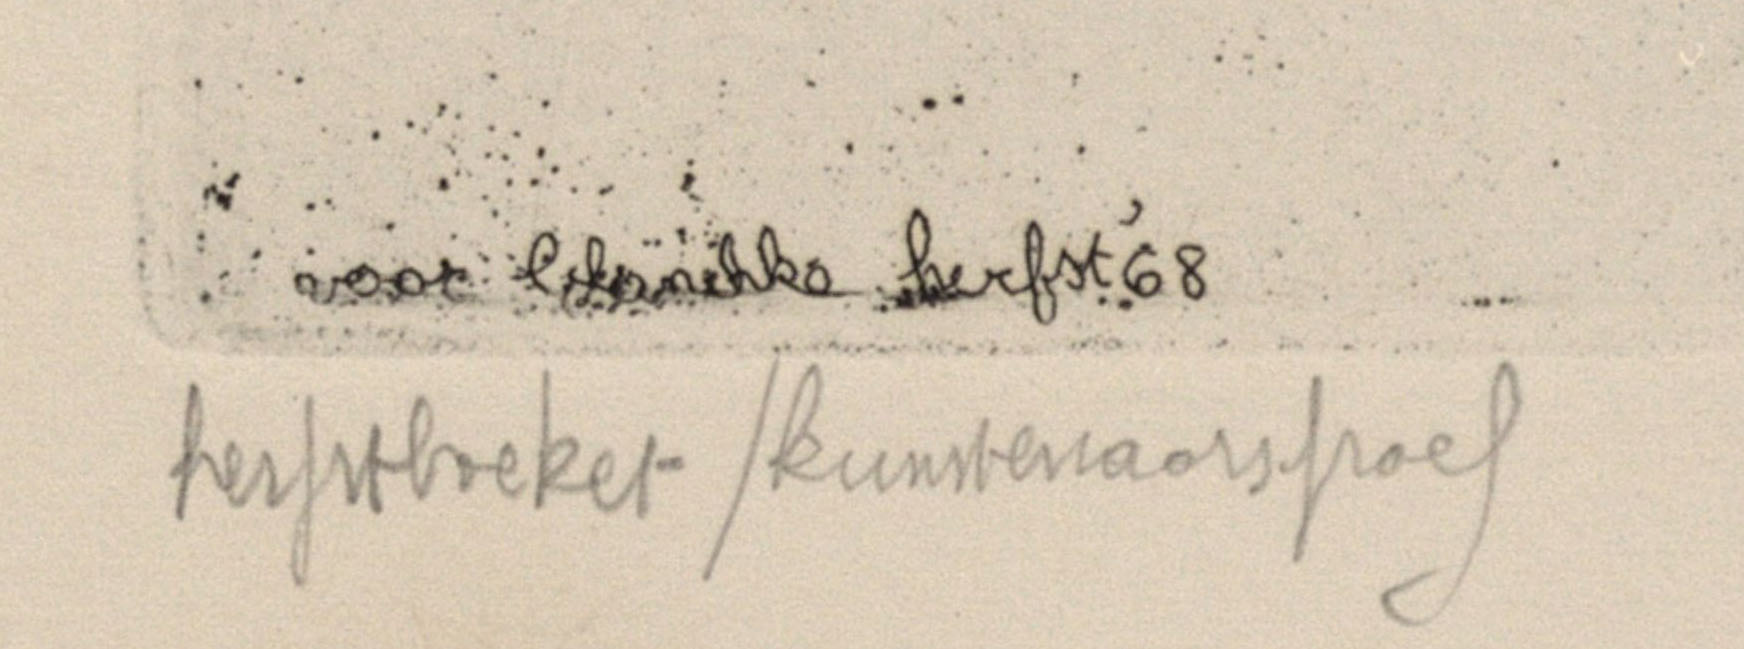 voor herfst '68
herfstboeket /kunstenaarsproef